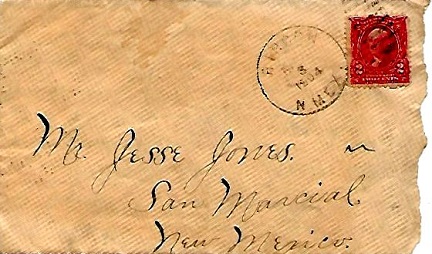 5
1904
N. MEX.
2 2
Mr. Jesse Jones.
San Marcial,
New Mexico.